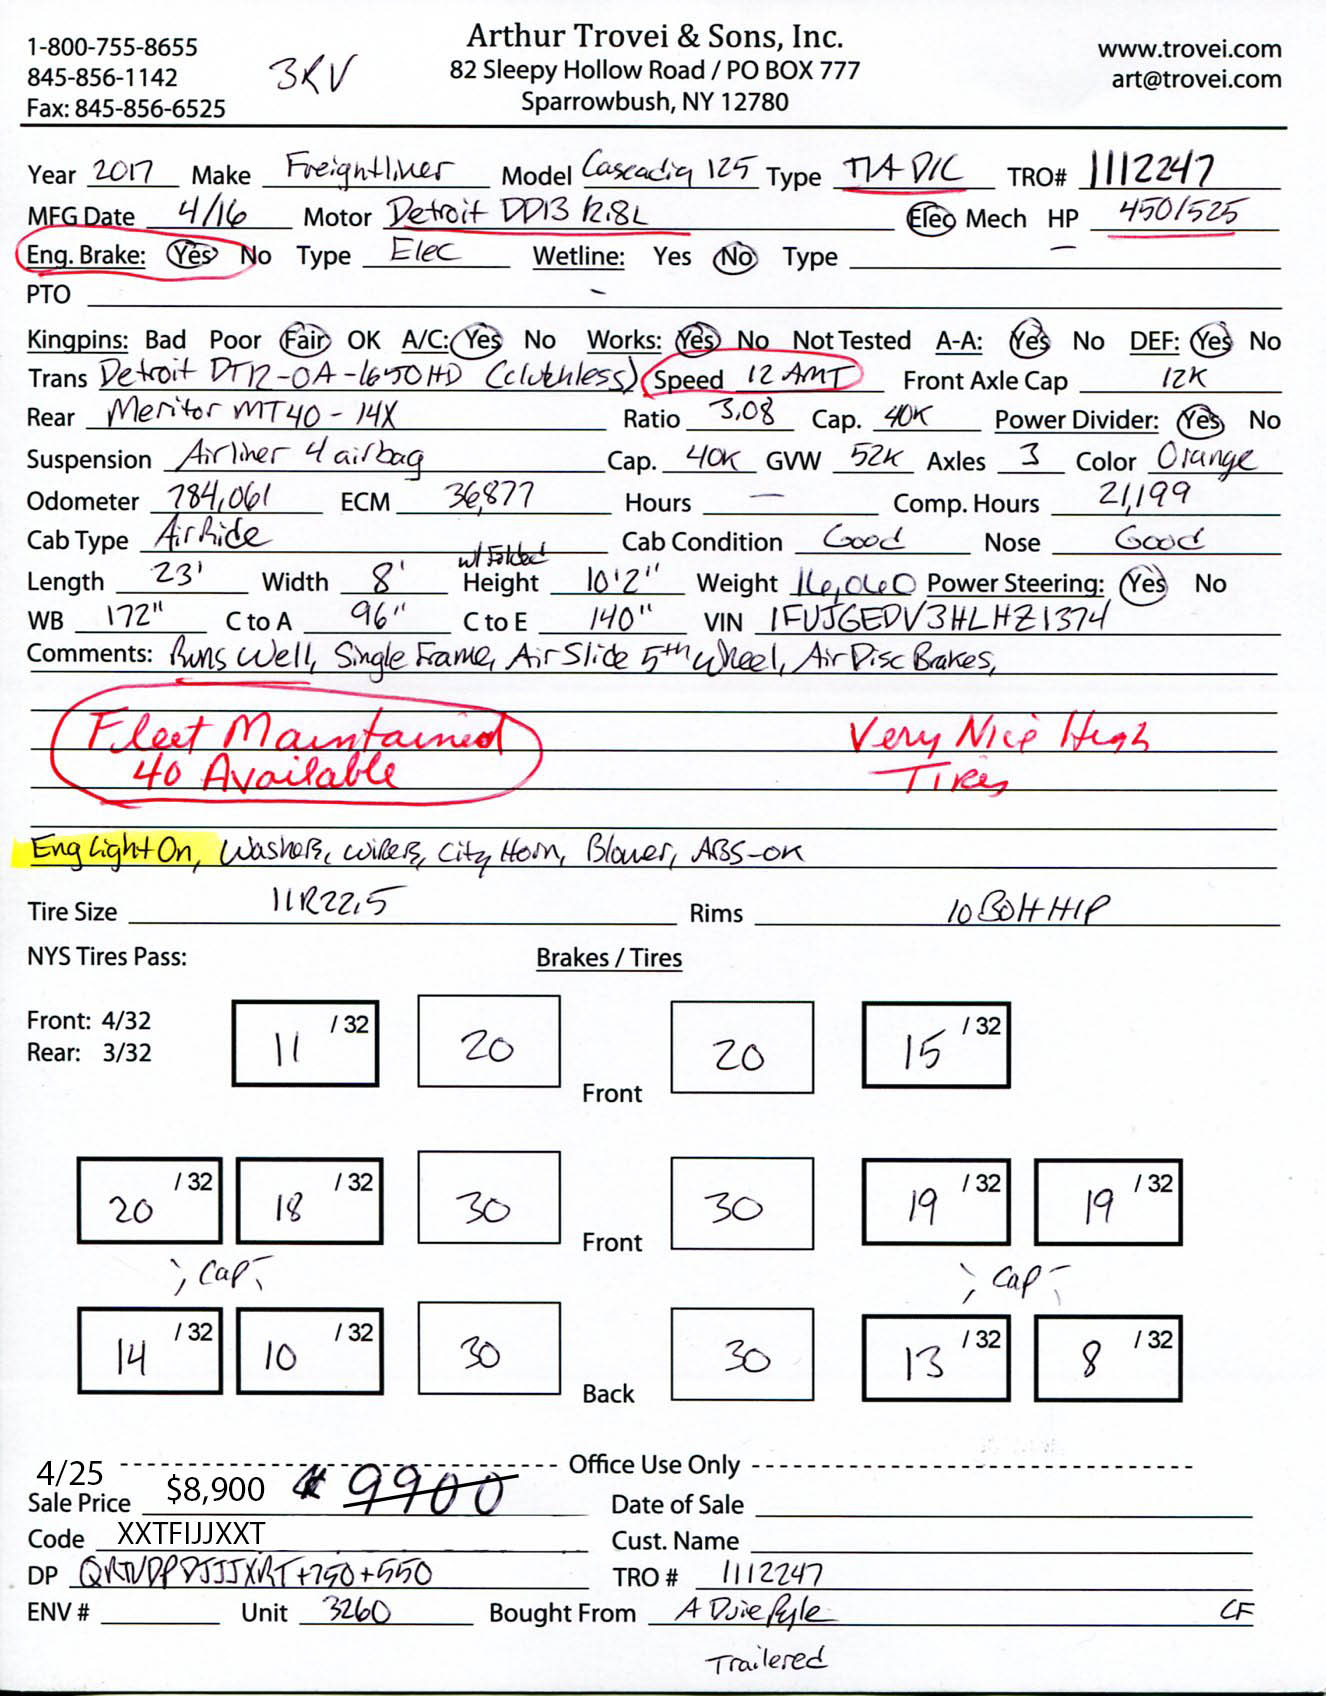 Arthur Trovei & Sons, Inc.
1-800-755-8655
845-856-1142
Fax: 845-856-6525
3KV
82 Sleepy Hollow Road / PO BOX 777
Sparrowbush, NY 12780
www.trovei.com
art@trovei.com
Year 2017 Make Freightliner Model Cascadia 125 Type T/A D/C TRO# 1112247
MFG Date 4/16 Motor Detroit DD13 12.8L Elec Mech HP 450/525
Eng. Brake: Yes No Type Elec Wetline: Yes No Type —
PTO –
Kingpins: Bad Poor Fair OK A/C: Yes No Works: Yes No Not Tested A-A: Yes No DEF: Yes No
Trans Detroit DT12-OA-1650HD (clutchless) Speed 12 AMT Front Axle Cap 12K
Rear Meritor MT40-14X Ratio 3.08 Cap. 40K Power Divider: Yes No
Suspension Airliner 4 airbag Cap. 40K GVW 52K Axles 3 Color Orange
Odometer 784,061 ECM 36,877 Hours — Comp. Hours 21,199
Cab Type Air Ride Cab Condition Good Nose Good
w/ Folded
Length 23' Width 8' Height 10'2" Weight 16,060 Power Steering: Yes No
WB 172" C to A 96" C to E 140" VIN 1FUJGEDV3HLHZ1374
Comments: Runs Well, Single Frame, Air Slide 5th Wheel, Air Disc Brakes,
Fleet Maintained
40 Available
Very Nice High
Tires
Eng Light On, Washers, wipers, City Horn, Blower, ABS-OK
Tire Size 11R22.5 Rims
NYS Tires Pass: Brakes / Tires
Front: 4/32
Rear: 3/32
11 /32 20 20 15 /32
Front
20 /32 18 /32 30 30 19 /32 19 /32
Front
Cap Cap
14 /32 10 /32 30 30 13 /32 8 /32
Back
Office Use Only
4/25
Sale Price $8,900 9900 Date of Sale
Code XXTFIJJXXT Cust. Name
DP +750+550 TRO # 1112247
ENV # Unit 3260 Bought From A Duie Pyle CF
Trailered